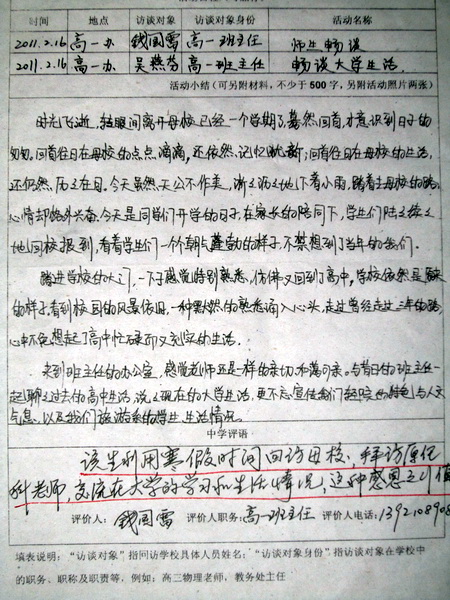 时间 地点 访谈对象 访谈对象身份 活动名称
2011.2.16 高一办 钱国雷 高一班主任 师生畅谈
2011.2.16 高一办 吴燕芬 高一班主任 畅谈大学生活
活动小结（可另附材料，不少于 500 字，另附活动照片两张）
时光飞逝，转眼间离开母校已经一个学期了，蓦然回首，才意识到日子的
匆匆。回首往日在母校的点点滴滴，还依然记忆犹新；回首往日在母校的生活，
还仍然历历在目。今天虽然天公不作美，淅淅沥沥地下着小雨，踏着去母校的路，
心情却格外兴奋。今天是同学们开学的日子，在家长的陪同下，学生们陆陆续续
地回校报到，看着学生们一个个朝气蓬勃的样子，不禁想到了当年的我们。
踏进学校的大门，一下子感觉特别熟悉，仿佛又回到了高中，学校依然是原来
的样子，看到校园的风景依旧，一种默然的熟悉涌入心头，走过曾经走过三年的路，
心中不免想起了高中忙碌而又充实的生活。
来到班主任的办公室，感觉老师还是一样的亲切和蔼可亲。与昔日的班主任一
起聊过去的高中生活，说说现在的大学生活，更不忘宣传我们学院的特色与人文
气息，以及我们旅游系的学生生活情况。
中学评语
该生利用寒假时间回访母校，拜访原任
科老师，交流在大学的学习和生活情况，这种感恩之心值
评价人：钱国雷 评价人职务：高一班主任 评价人电话：1392108908
填表说明：“访谈对象”指回访学校具体人员姓名；“访谈对象身份”指访谈对象在学校中
的职务、职称及职责等，例如：高三物理老师，教务处主任